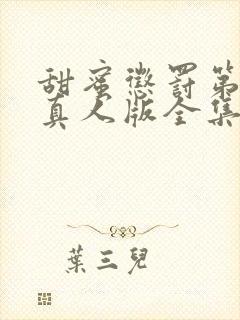 甜蜜懲罰第
真人版全集
葉三兒